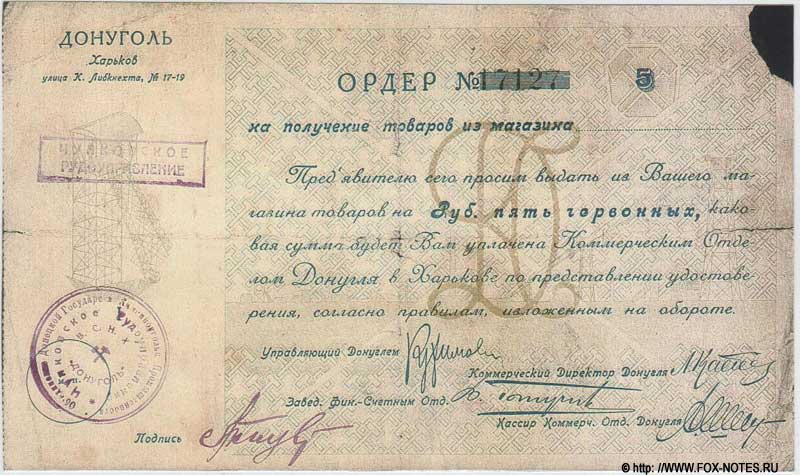 ДОНУГОЛЬ
Харьков
улица К. Либкнехта, № 17-19
ОРДЕР № 17127
5
на получение товаров из магазина
ЧУЛКОВСКОЕ
РУДОУПРАВЛЕНИЕ
Пред'явителю сего просим выдать из Вашего ма-
газина товаров на Руб. пять червонных, како-
вая сумма будет Вам уплачена Коммерческим Отде-
лом Донугля в Харькове по представлении удостове-
рения, согласно правилам, изложенным на обороте.
В.С.Н.Х
"ДОНУГОЛЬ"
Управляющий Донуглем
Коммерческий Директор Донугля
Завед. Фин.-Счетным Отд.
Кассир Коммерч. Отд. Донугля
Подпись
http://www.FOX-NOTES.RU